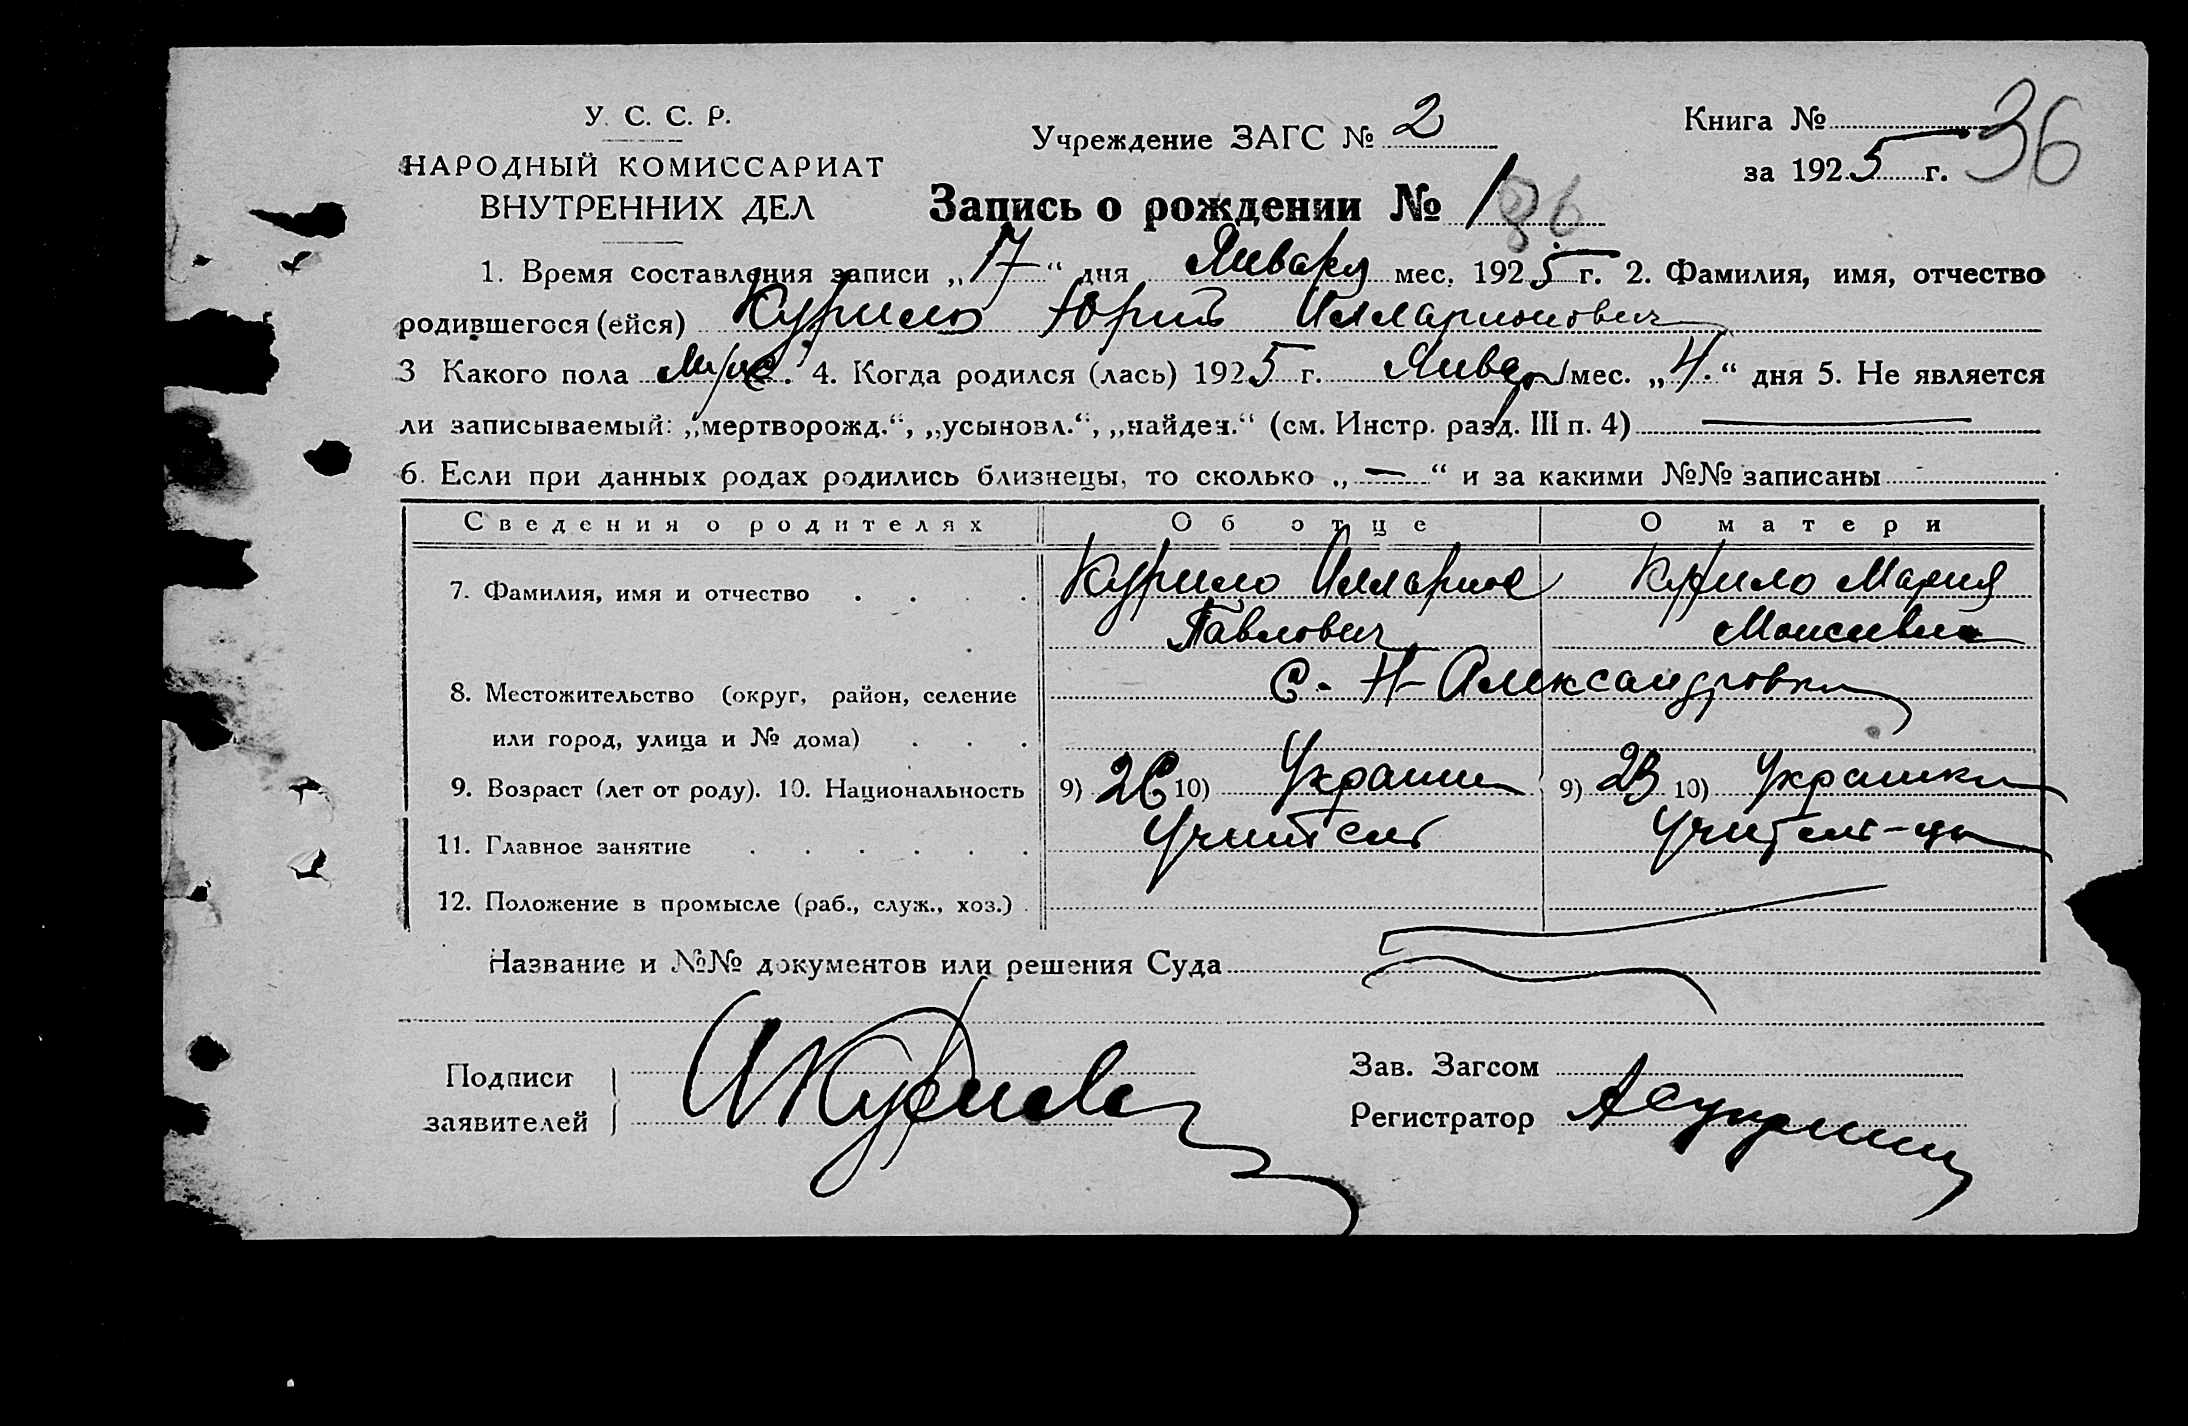 У. С. С. Р.
НАРОДНЫЙ КОМИССАРИАТ
ВНУТРЕННИХ ДЕЛ
Учреждение ЗАГС № 2
Книга №
за 1925 г.
36
Запись о рождении № 1
1. Время составления записи „17“ дня Января мес. 1925 г. 2. Фамилия, имя, отчество
родившегося (ейся) Курило Юрий Илларионович
3 Какого пола муж. 4. Когда родился (лась) 1925 г. Январ мес. „4.“ дня 5. Не является
ли записываемый: „мертворожд.“, „усыновл.“, „найден.“ (см. Инстр. разд. III п. 4) —
6. Если при данных родах родились близнецы, то сколько „—“ и за какими №№ записаны
Сведения о родителях Об отце О матери
7. Фамилия, имя и отчество Курило Илларион Курило Мария
Павлович Моисеевна
8. Местожительство (округ, район, селение С. Н-Александровка
или город, улица и № дома)
9. Возраст (лет от роду). 10. Национальность 9) 26 10) Украинец 9) 23 10) Украинка
11. Главное занятие Учитель Учитель-ца
12. Положение в промысле (раб., служ., хоз.)
Название и №№ документов или решения Суда
Подписи
заявителей
ИКурило
Зав. Загсом
Регистратор